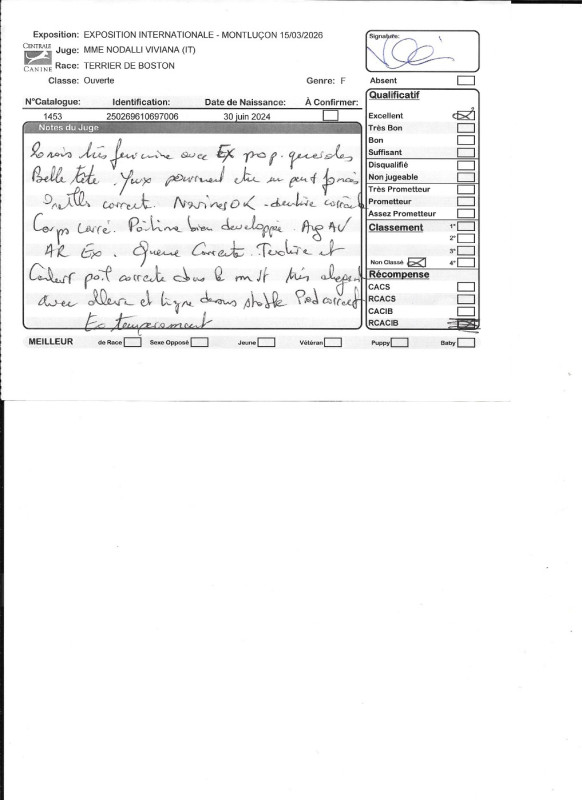 Exposition: EXPOSITION INTERNATIONALE - MONTLUÇON 15/03/2026
CENTRALE CANINE
Juge: MME NODALLI VIVIANA (IT)
Race: TERRIER DE BOSTON
Classe: Ouverte Genre: F
Signature:
Absent
N°Catalogue: Identification: Date de Naissance: À Confirmer:
1453 250269610697006 30 juin 2024
Notes du Juge
très feminine avec Ex prop. generales
Belle tête. Yeux pourraient etre un peu + foncés
correcte. Narines OK - denture correcte
Corps carré. Poitrine bien developpée. Ang AV
AR Ex. Queue Correcte. Texture et
Couleur poil correcte dans le très elegant
avec allure et ligne dessus stable Pied correct
Ex temperament
Qualificatif
Excellent
Très Bon
Bon
Suffisant
Disqualifié
Non jugeable
Très Prometteur
Prometteur
Assez Prometteur
Classement 1°
2°
3°
Non Classé 4°
Récompense
CACS
RCACS
CACIB
RCACIB
MEILLEUR de Race Sexe Opposé Jeune Vétéran Puppy Baby